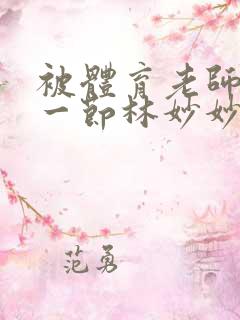 被體育老師
一節林妙妙
范勇